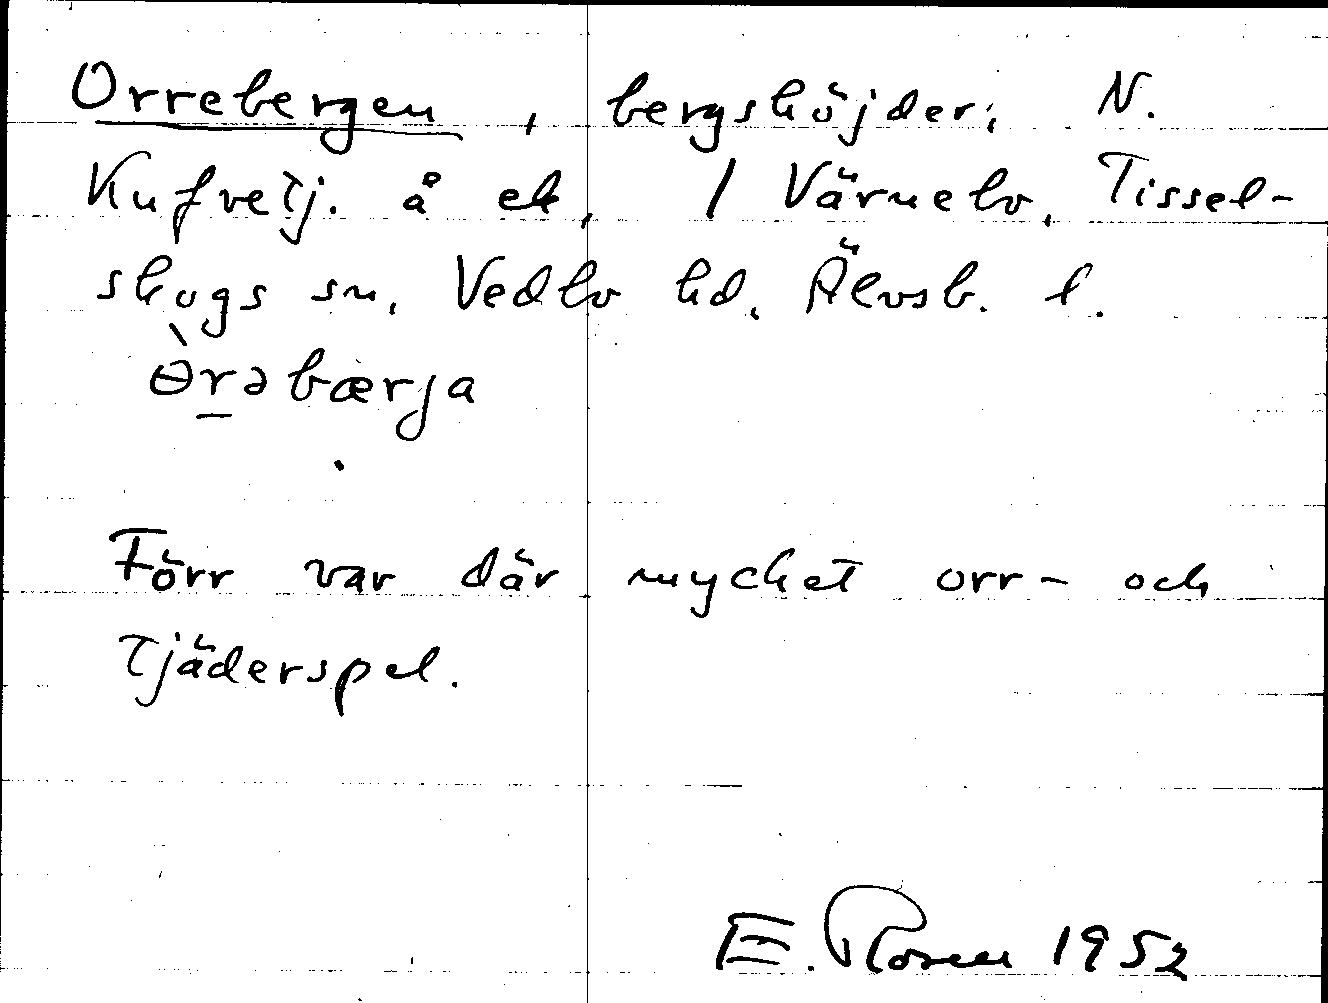 Orrebergen, bergshöjder; N.
Kufvetj. å ek, 1 Värnebo, Tissel-
skogs sn, Vedbo hd, Älvsb. l.
Ɵ̀rəbærja
Förr var där mycket orr- och
tjäderspel.
E. Rosen 1952